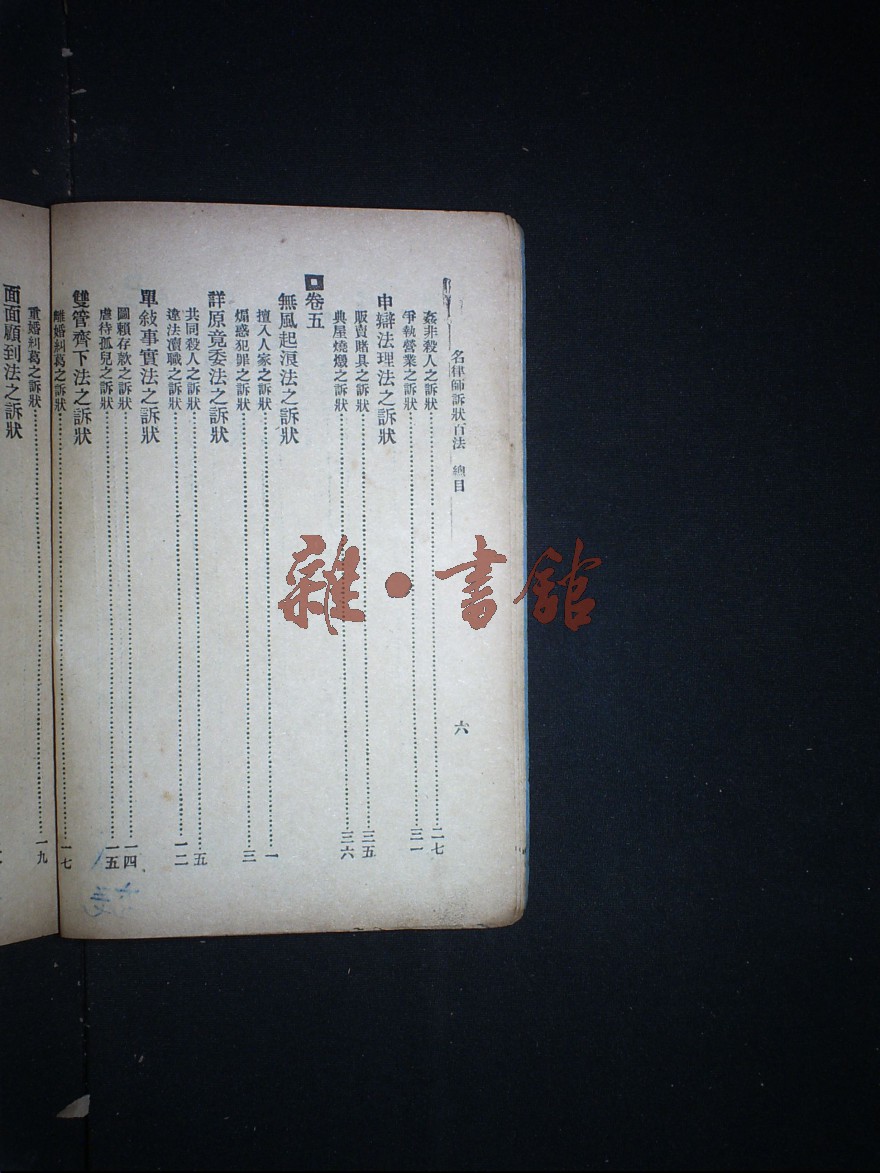 名律師訴狀百法 總目 六
姦非殺人之訴狀 二七
爭執營業之訴狀 三一
申辯法理法之訴狀
販賣賭具之訴狀 三五
典屋燒燬之訴狀 三六
卷五
無風起浪法之訴狀
擅入人家之訴狀 一
煽惑犯罪之訴狀 三
詳原竟委法之訴狀
共同殺人之訴狀 五
違法瀆職之訴狀 一二
單敍事實法之訴狀
圖賴存款之訴狀 一四
虐待孤兒之訴狀 一五
雙管齊下法之訴狀
離婚糾葛之訴狀 一七
重婚糾葛之訴狀 一九
面面顧到法之訴狀
雜·書館